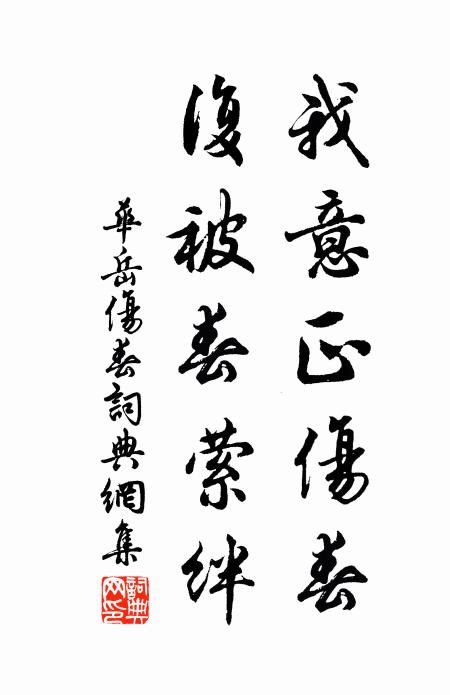 我意正傷春
復被春縈絆
華岳傷春詞典網集
詞典網印